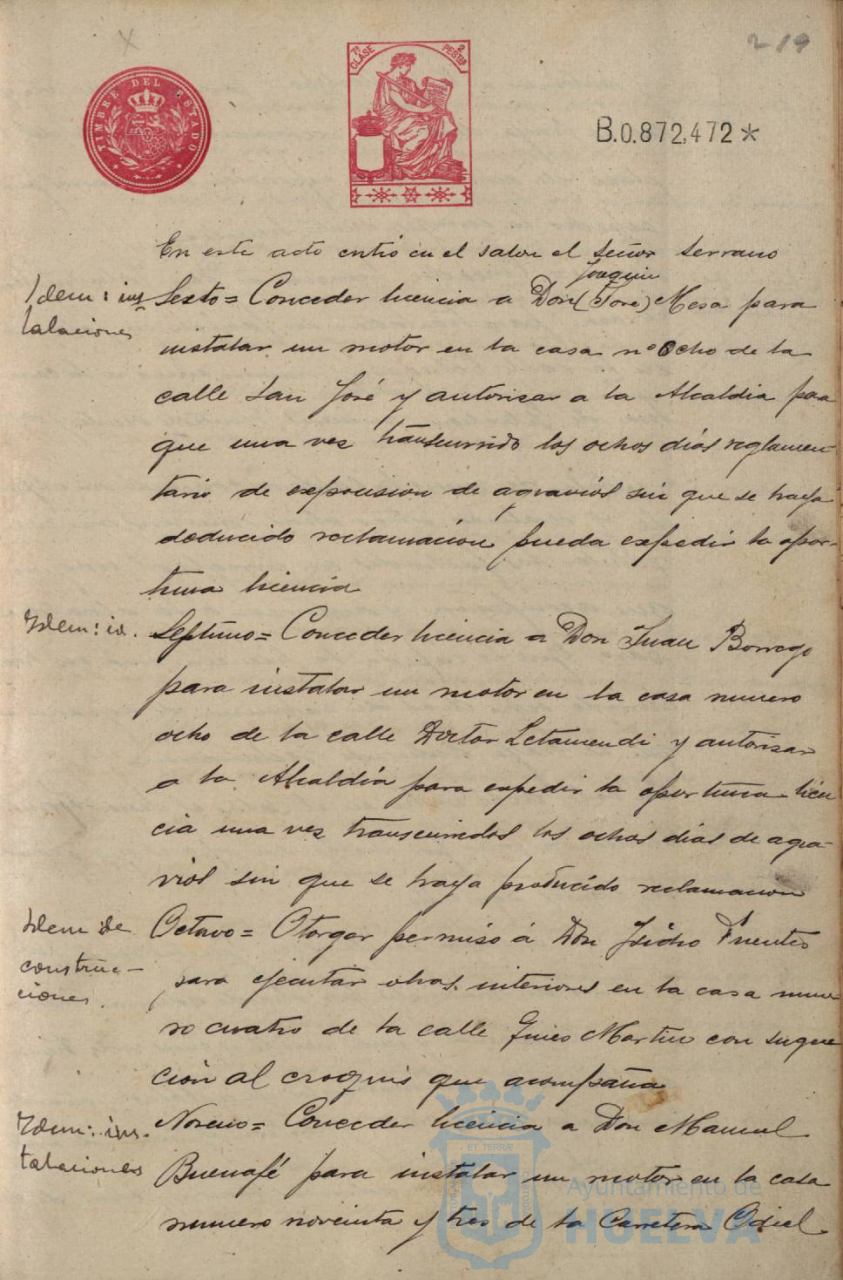 219
TIMBRE DEL ESTADO
7ª CLASE 2 PESTAS
B.0.872,472*
En este acto entró en el salon el señor Serrano
Joaquin
Idem: ins
talaciones
Sexto= Conceder licencia a Don (José) Mesa para
instalar un motor en la casa nº Ocho de la
calle San José y autorisar a la Alcaldia para
que una ves transcurrido los ochos días reglamen-
tario de exposicion de agravios sin que se haya
deducido reclamacion pueda expedir la opor-
tuna licencia
Idem: id.
Septimo= Conceder licencia a Don Juan Borrego
para instalar un motor en la casa numero
ocho de la calle Doctor Letamendi y autorisar
a la Alcaldía para expedir la oportuna licen
cia una ves transcurridos los ochos dias de agra-
vios sin que se haya producido reclamacion
Idem de
construc-
ciones.
Octavo= Otorgar permiso á Don Isidro Fuentes
para ejecutar obras interiores en la casa nume
ro cuatro de la calle Gines Martin con sugue
ción al croquis que acompaña
Idem: ins-
talaciones
Noveno= Conceder licencia a Don Manuel
Buenafé para instalar un motor en la casa
numero noveinta y tres de la Carretera Odiel
ET TERRÆ
Ayuntamiento de
HUELVA